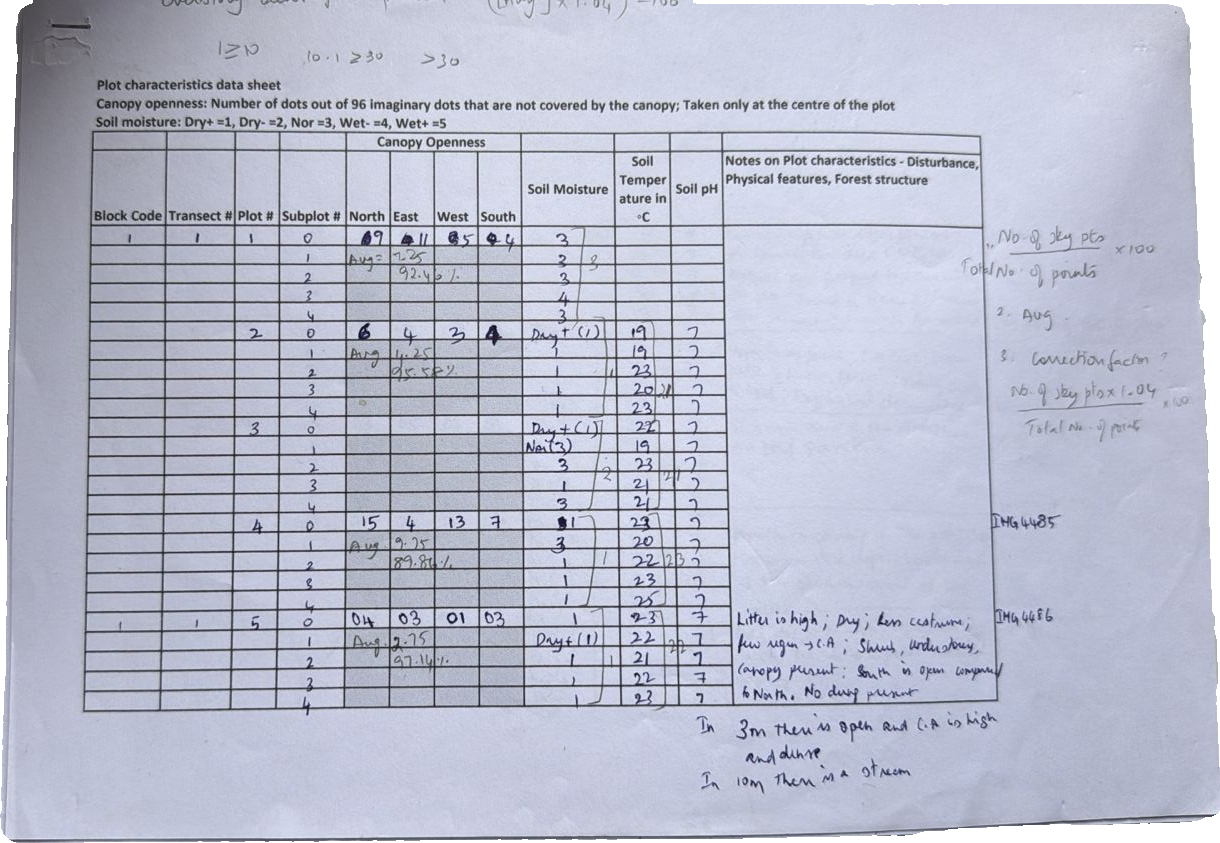 (Avg) x 1.04) - 100
1≥10 10.1≥30 >30
Plot characteristics data sheet
Canopy openness: Number of dots out of 96 imaginary dots that are not covered by the canopy; Taken only at the centre of the plot
Soil moisture: Dry+ =1, Dry- =2, Nor =3, Wet- =4, Wet+ =5
Canopy Openness
Block Code Transect # Plot # Subplot # North East West South Soil Moisture Soil Temper ature in °C Soil pH Notes on Plot characteristics - Disturbance, Physical features, Forest structure
1 1 1 0 9 11 5 4 3
1 Avg= 7.25 3 3
2 92.46 % 3
3 4
4 3
2 0 6 4 3 4 Dry+ (1) 19 7
1 Avg 4.25 1 19 7
2 95.58% 1 1 23 7
3 1 20 21 7
4 1 23 7
3 0 Dry+(1) 22 7
1 Nor(3) 19 7
2 3 2 23 21 7
3 1 21 7
4 3 21 7
4 0 15 4 13 7 1 23 7 IMG4485
1 Avg 9.75 3 20 7
2 89.86% 1 1 22 23 7
3 1 23 7
4 1 25 7
1 1 5 0 04 03 01 03 1 23 7 Litter is high; Dry; less cestrum; IMG4486
1 Avg. 2.75 Dry+(1) 22 22 7 few regen → C.A; Shrub, understorey,
2 97.14% 1 1 21 7 Canopy present; South is open compared
3 1 22 7 to North. No dung present
4 1 23 7
In 3m there is open and C.A is high
and dense
In 10m there is a stream
No. of sky pts x100
Total No. of points
2. Avg.
3. Correction factor ?
No. of sky pts x 1.04 x100
Total No. of points